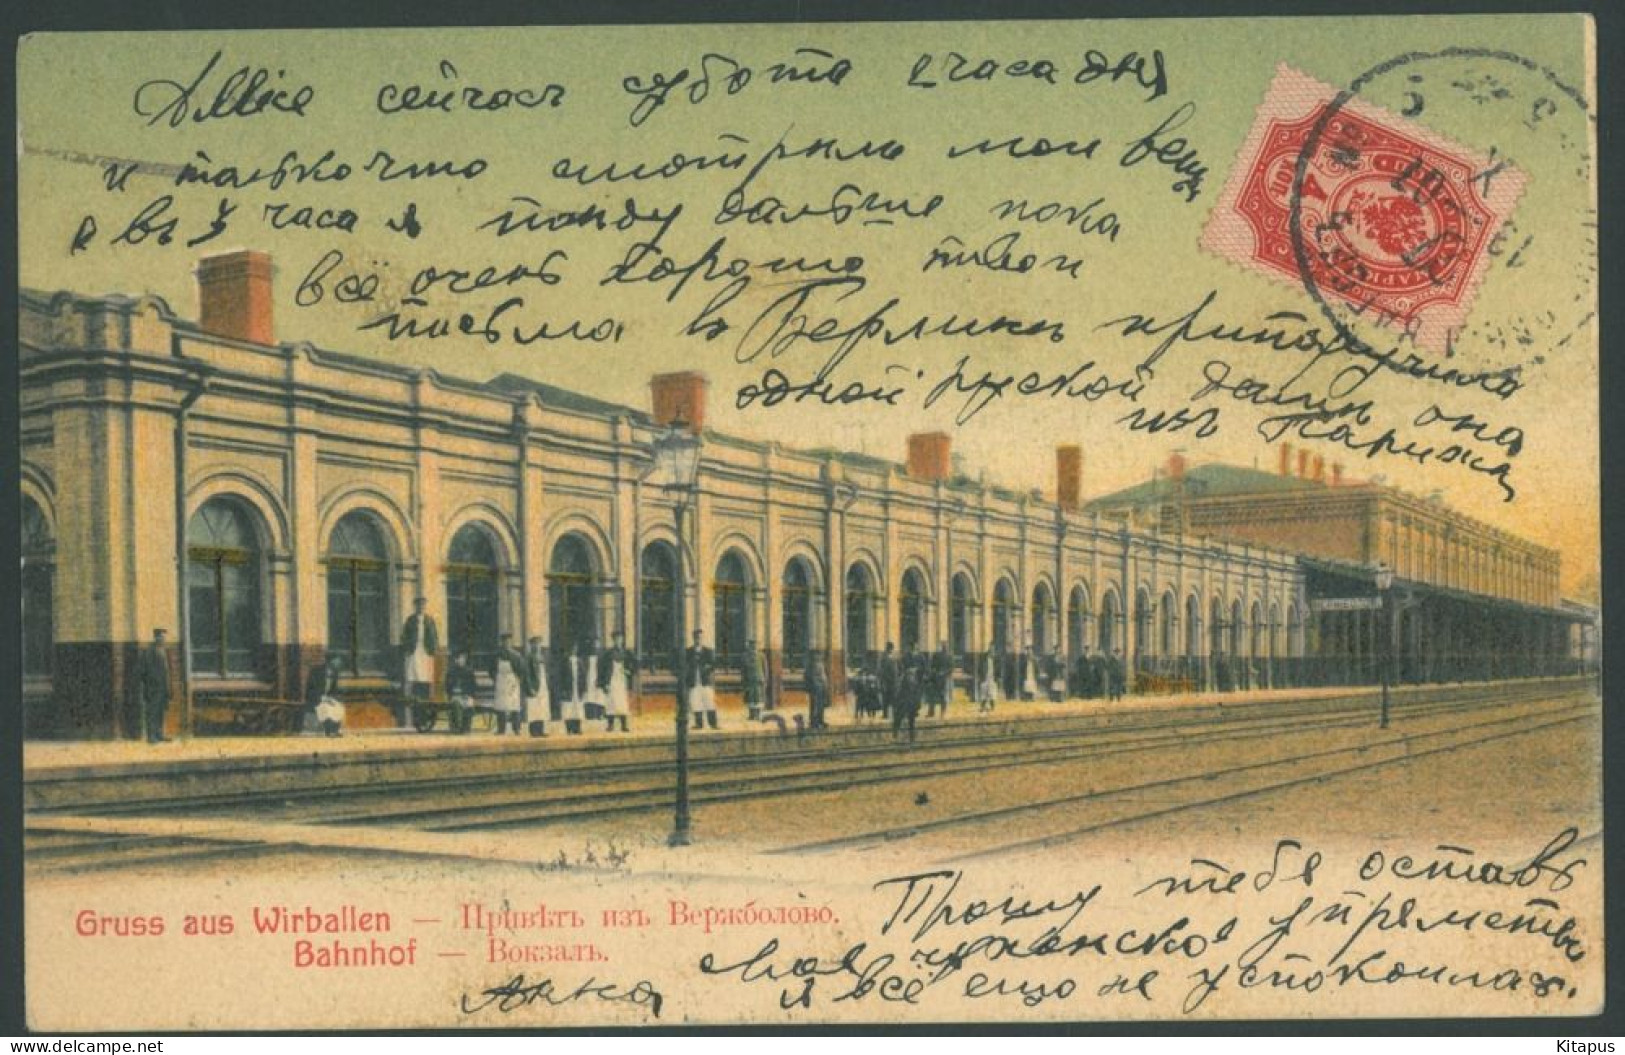 Alice сейчасъ субота 2 часа дня
и толькочто смотрели мои вещи
и въ 3 часа я поиду дальше пока
всё очень хорошо твои
письма в Берлинъ припоручила
одной руской даме она
изъ Парижа
Gruss aus Wirballen — Привѣтъ изъ Вержболово.
Bahnhof — Вокзалъ.
Прошу тебя оставь
своё чухонское упрямство
я всё ещо не успокоилась.
Анна
4 КОП
13 X 07
Kitapus